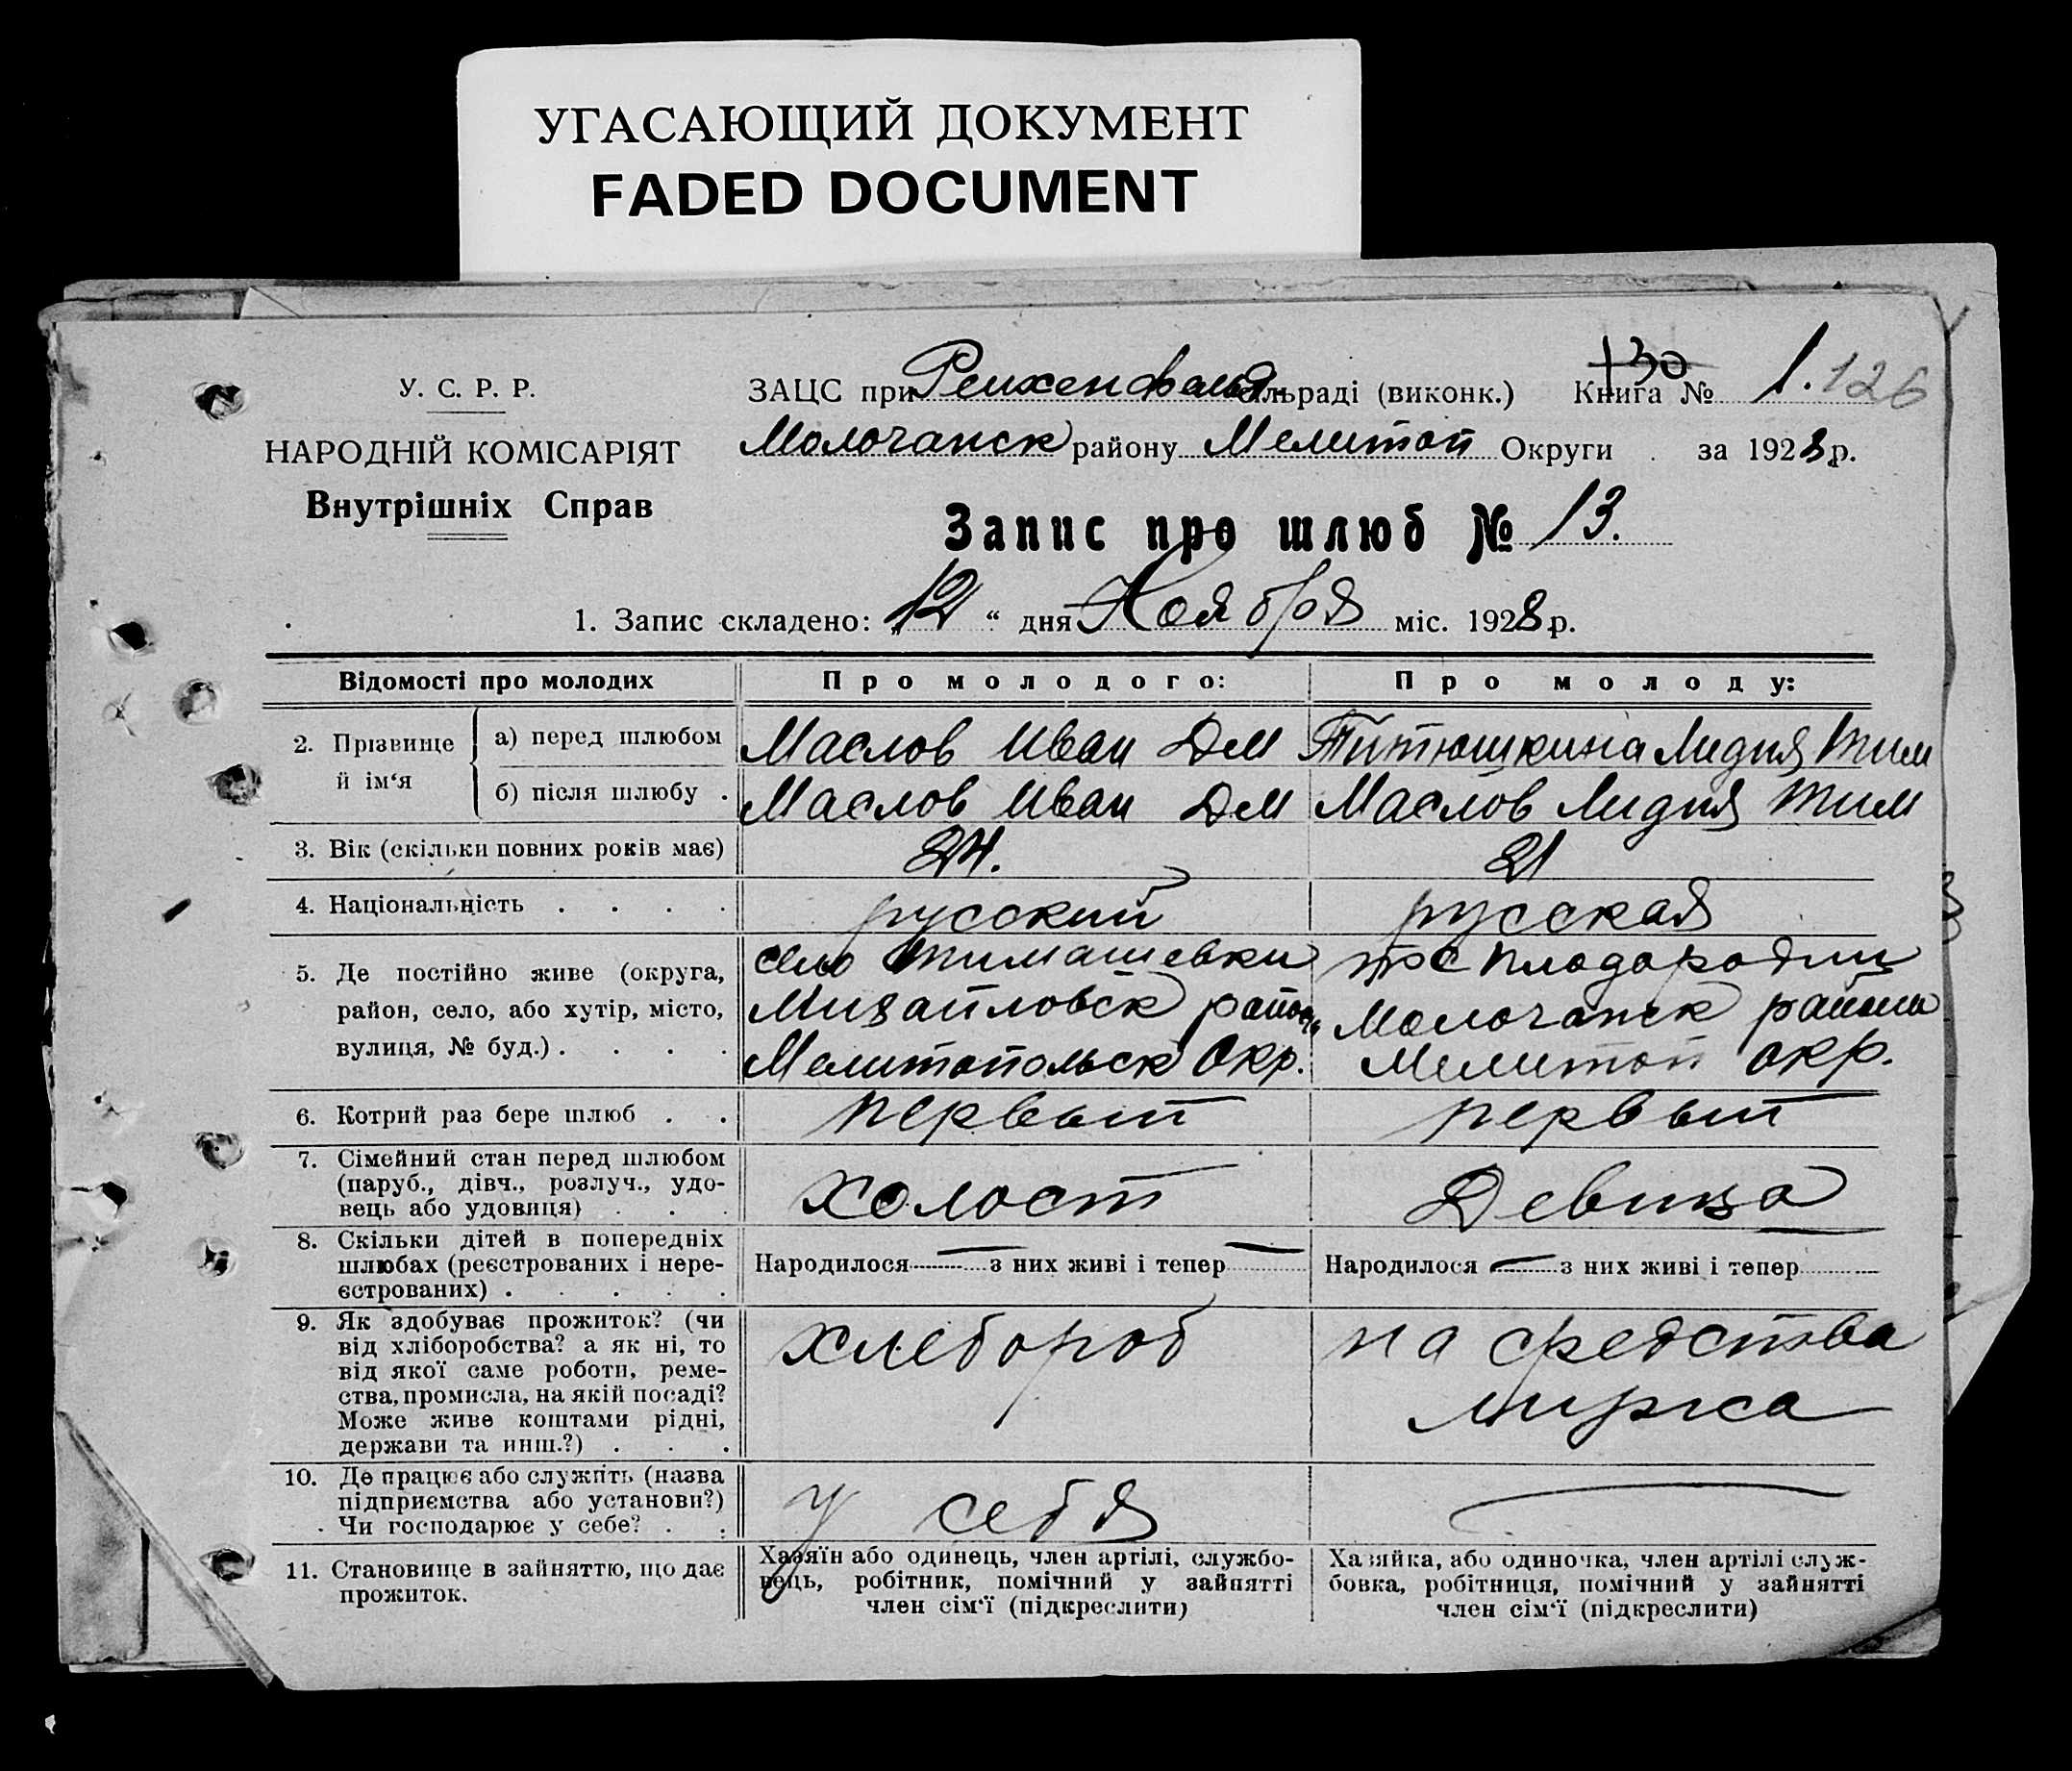 УГАСАЮЩИЙ ДОКУМЕНТ
FADED DOCUMENT
У. С. Р. Р.
НАРОДНІЙ КОМІСАРІЯТ
Внутрішніх Справ
130
ЗАЦС при Рейхенфельд сільраді (виконк.) Книга № 1. 126
Молочанск району Мелитоп Округи . за 1928 р.
Запис про шлюб № 13.
1. Запис складено: „12“ дня Ноября міс. 1928 р.
Відомості про молодих
Про молодого:
Про молоду:
2. Прізвище й ім‘я
а) перед шлюбом
Маслов Иван Дм
Титюшкина Лидия Тим
б) після шлюбу .
Маслов Иван Дм
Маслов Лидия Тим
3. Вік (скільки повних років має)
24.
21
4. Національність . . . .
русский
русская
5. Де постійно живе (округа,
район, село, або хутір, місто,
вулиця, № буд.) . . . .
село Тимашевки
Михайловск район
Мелитопольск Окр.
Плодородии
Молочанск района
Мелитоп окр.
6. Котрий раз бере шлюб . .
первый
первый
7. Сімейний стан перед шлюбом
(паруб., дівч., розлуч., удо-
вець або удовиця) . . .
холост
Девица
8. Скільки дітей в попередніх
шлюбах (реєстрованих і нере-
єстрованих) . . . . .
Народилося — з них живі і тепер —
Народилося — з них живі і тепер —
9. Як здобуває прожиток? (чи
від хліборобства? а як ні, то
від якої саме роботи, реме-
ства, промисла, на якій посаді?
Може живе коштами рідні,
держави та инш.?) . . .
хлебороб
на средства
10. Де працює або служить (назва
підприємства або установи?)
Чи господарює у себе? . .
у себя
—
11. Становище в зайняттю, що дає
прожиток.
Хазяїн або одинець, член артілі, службо-
вець, робітник, помічний у зайнятті
член сім‘ї (підкреслити)
Хазяйка, або одиночка, член артілі служ-
бовка, робітниця, помічний у зайнятті
член сім‘ї (підкреслити)